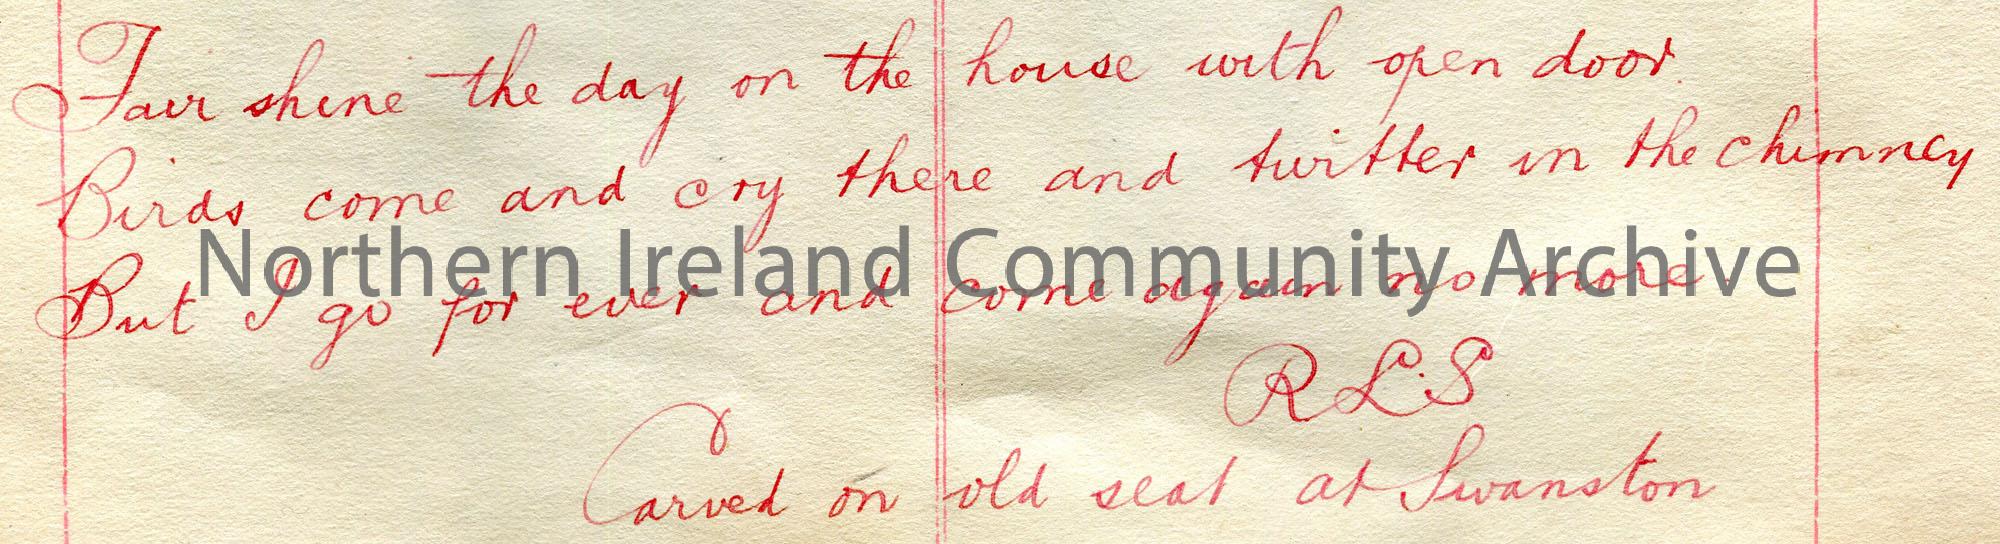 Fair shine the day on the house with open door.
Birds come and cry there and twitter in the chimney
Northern Ireland Community Archive
But I go for ever and come again no more
R L S
Carved on old seat at Swanston